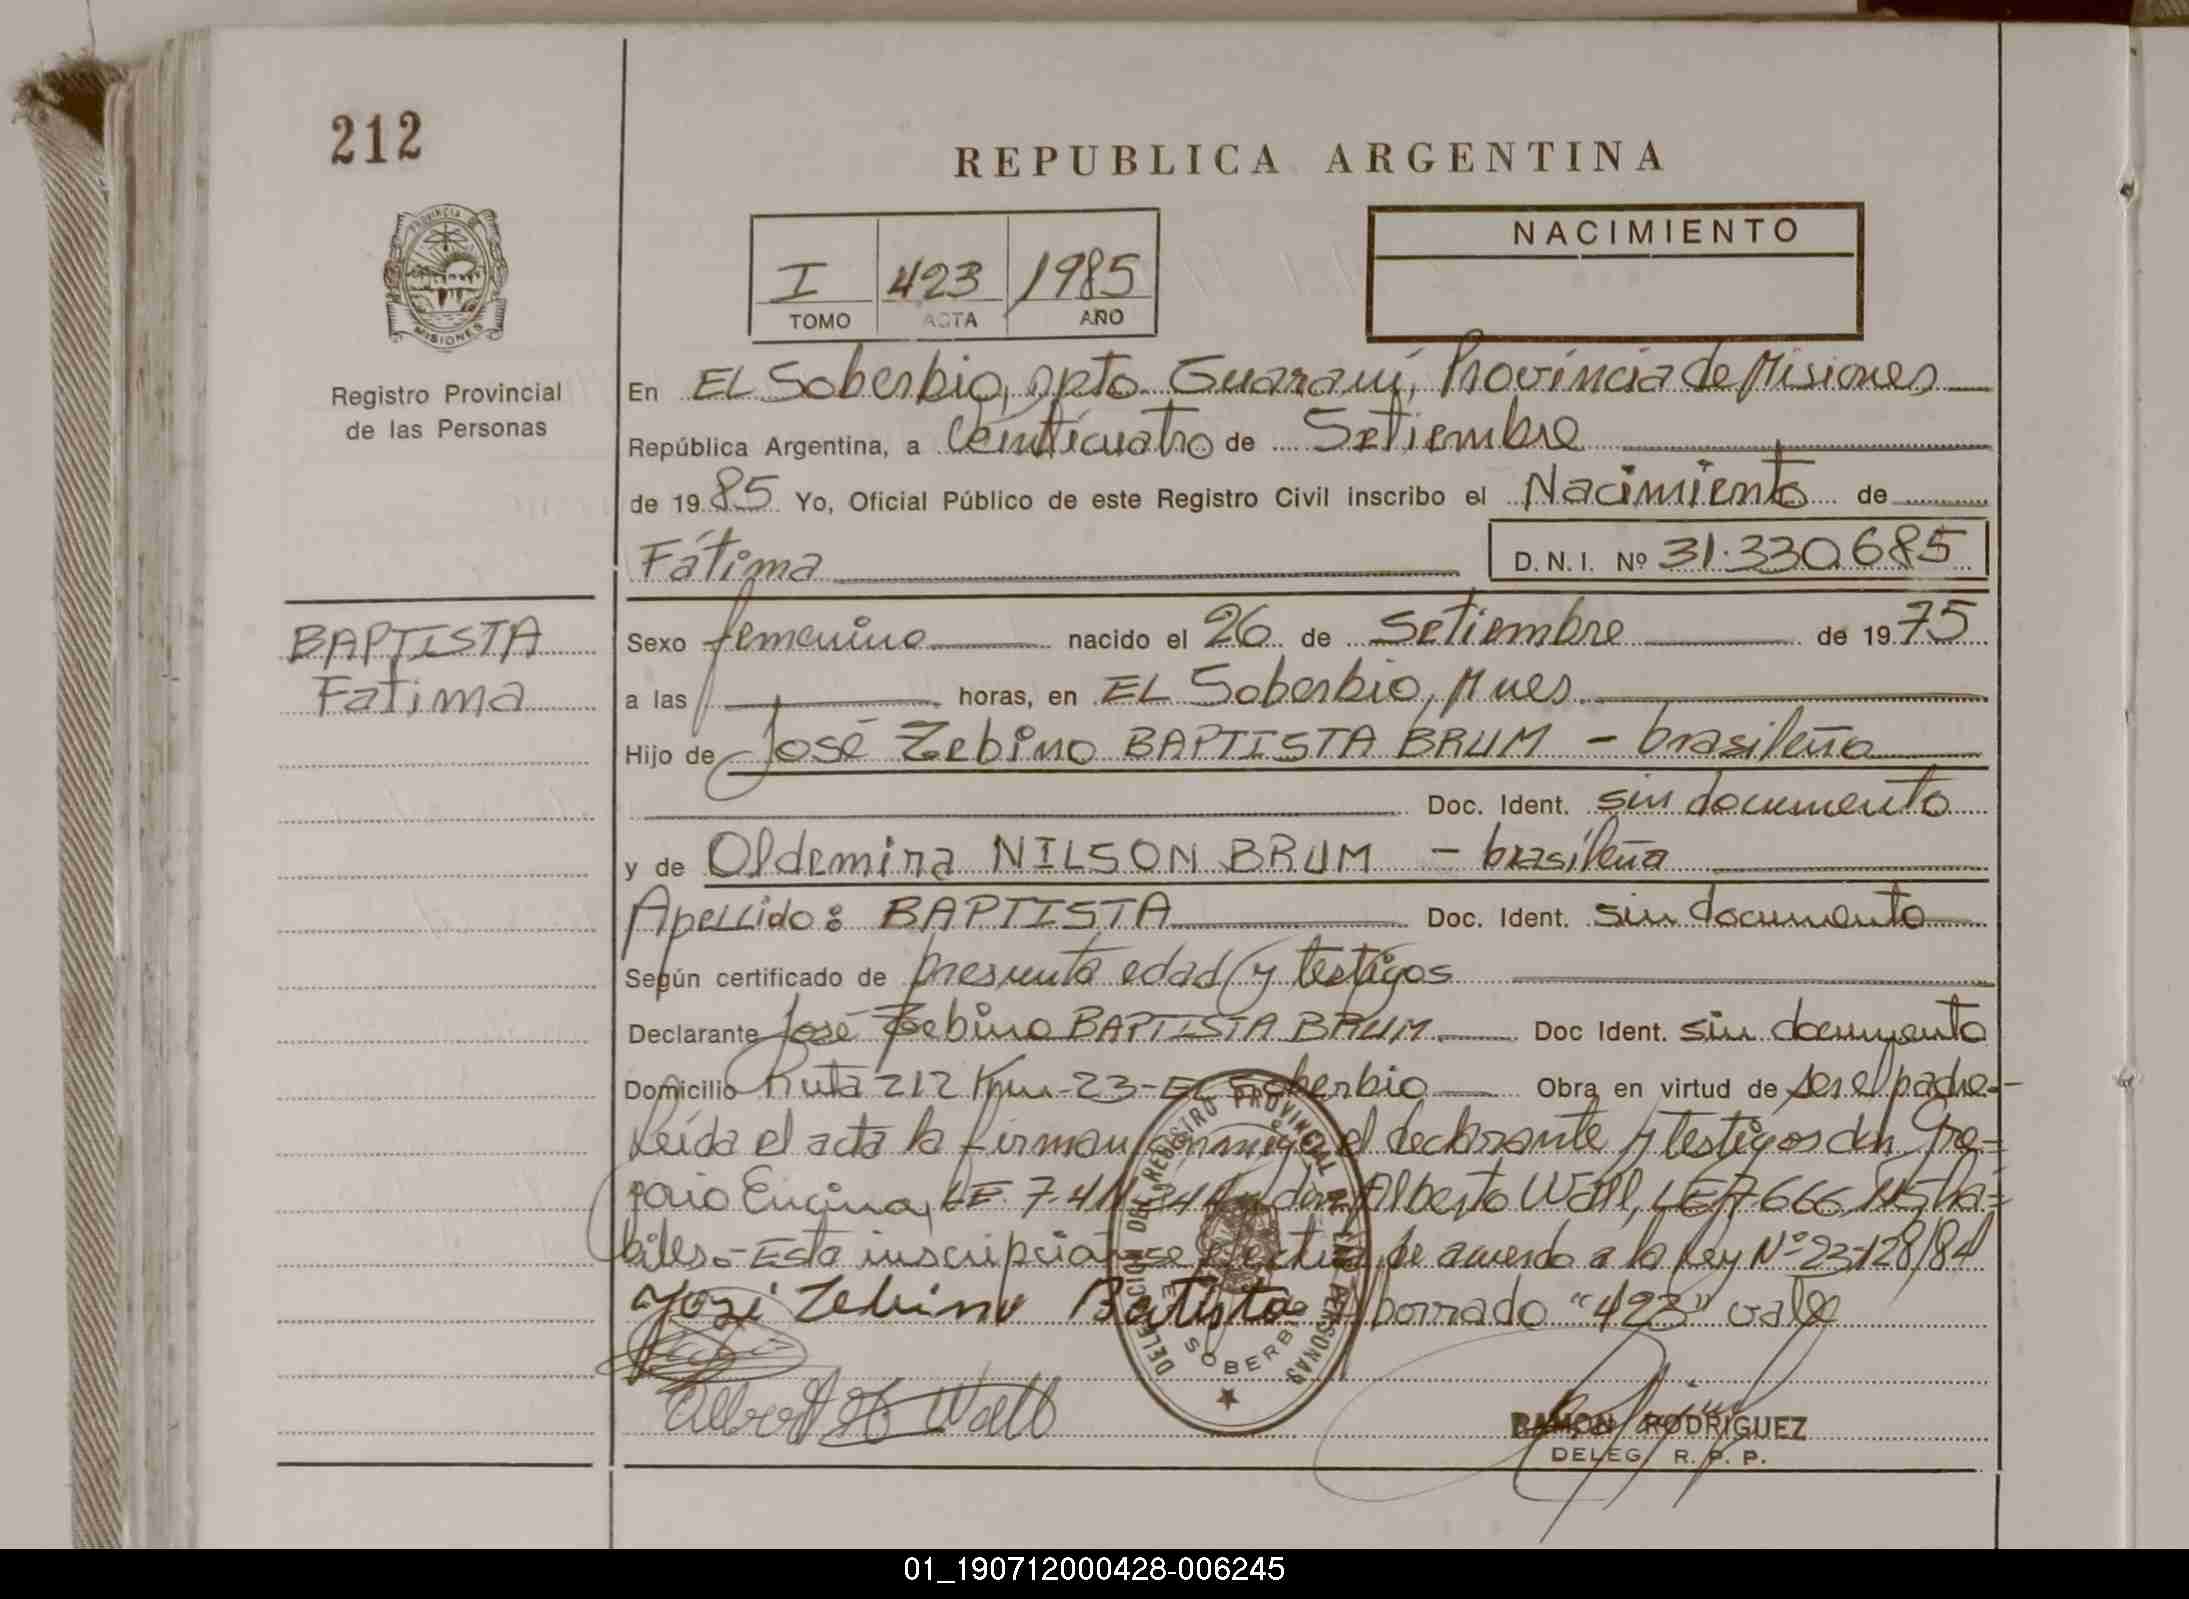 212
REPUBLICA ARGENTINA
PROVINCIA DE
MISIONES
Registro Provincial
de las Personas
I 423 1985
TOMO ACTA AÑO
NACIMIENTO
En EL Soberbio, Dpto Guaraní, Provincia de Misiones
República Argentina, a Veinticuatro de Setiembre
de 1985 Yo, Oficial Público de este Registro Civil inscribo el Nacimiento de
Fátima D.N.I. Nº 31.330.685
BAPTISTA
Fatima
Sexo femenino nacido el 26 de Setiembre de 1975
a las horas, en EL Soberbio, Mnes.
Hijo de José Zebino BAPTISTA BRUM - brasileño
Doc. Ident. sin documento
y de Oldemira NILSON BRUM - brasileña
Apellido: BAPTISTA Doc. Ident. sin documento
Según certificado de presunta edad y testigos
Declarante José Zebino BAPTISTA BRUM Doc Ident. sin documento
Domicilio Ruta 212 Km-23-EL Soberbio Obra en virtud de ser el padre.-
Leída el acta la firman conmigo el declarante y testigos don Gre=
gorio Encina, LE. 7.4 y don Alberto Wall, LE 7.666.115 há=
biles.- Esta inscripción se efectua de acuerdo a la Ley Nº 23.128/84
José Zebino Batista borrado "423" vale
Albert Wall
DELEGACION DEL REGISTRO PROVINCIAL DE LAS PERSONAS
SOBERBIO
RAMON RODRIGUEZ
DELEG. R. P. P.
01_190712000428-006245